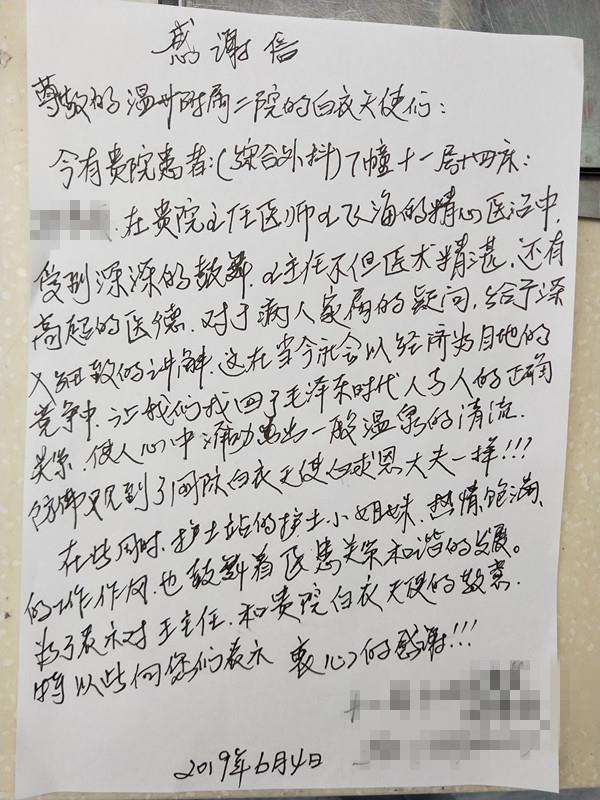 感谢信
尊敬的温州附属二院的白衣天使们：
今有贵院患者：(综合外科)7幢十一层十四床：
在贵院主任医师王飞海的精心医治中，
受到深深的鼓舞，王主任不但医术精湛，还有
高超的医德，对于病人家属的疑问，给予深
入细致的讲解，这在当今社会以经济为目地的
竞争中，让我们找回了毛泽东时代人与人的正确
关系，使人心中涌动出一股温泉的清流.
仿佛又见到了国际白衣天使白求恩大夫一样!!!
在此同时，护士站的护士小姐妹，热情饱满、
的工作作风，也鼓舞着医患关系和谐的发展。
为了表示对王主任，和贵院白衣天使的敬意.
特以此向您们表示 衷心的感谢!!!
2019年6月4日